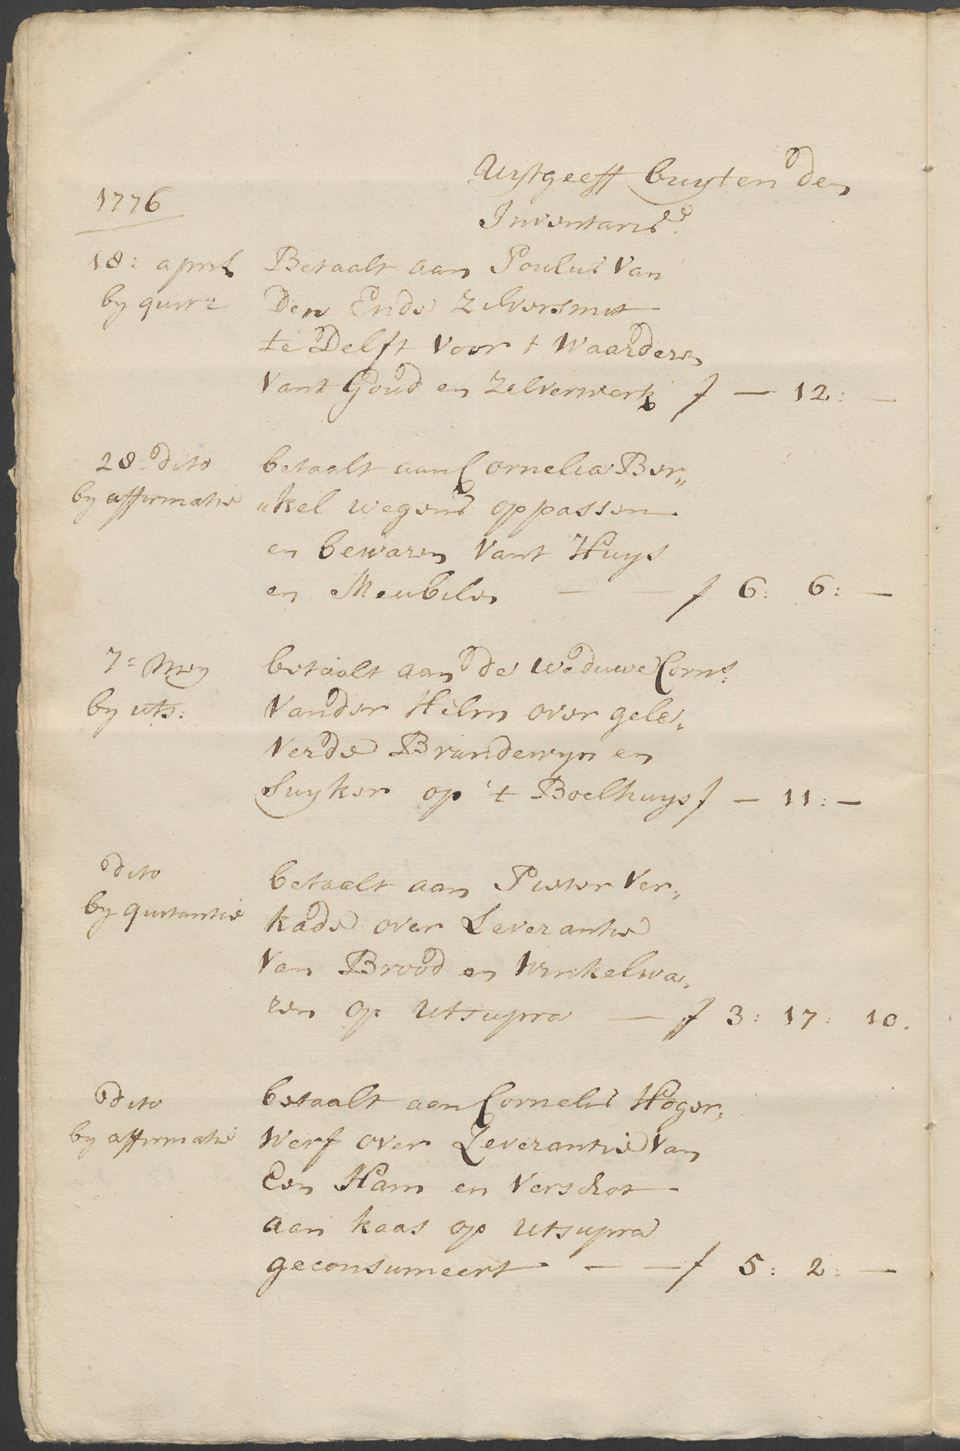 Uijtgeeff buijten den
Inventaris
1776
18: april Betaalt aan Poulus Van
by quit:e Den Ende Zilversmit
te Delft Voor t Waarderen
Vant Goud en Zilverwerk f — 12: —
28 dito betaalt aan Cornelia Ber„
by affirmatie „kel wegens oppassen
en bewaren Vant Huys
en Meubilen — — f 6: 6: —
7e Mey betaalt aan de weduwe Corns:
by uts: Vander Hilm over gele„
Verde Brandewyn en
Suyker op 't Boelhuys f — 11: —
dito betaalt aan Pieter Ver„
by quitantie kade over Leverantie
Van Brood en Winkelwa„
ren op Utsupra — f 3: 17: 10.
dito betaalt aen Cornelis Hoger„
by affirmatie Werf over Leverantie Van
Een Ham en Verschot
aan kaas op Utsupra
geconsumeert — — f 5: 2: —